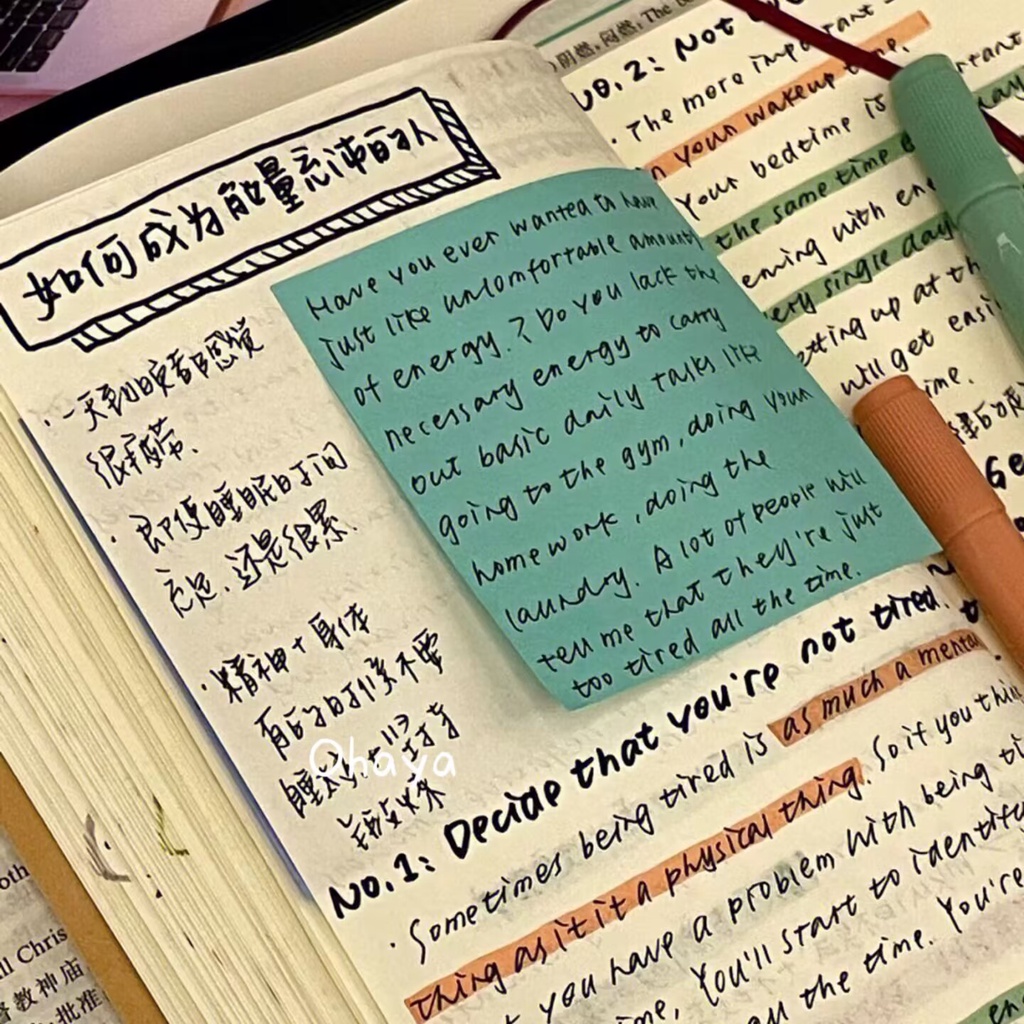 如何成为能量充沛的人
· 一天到晚都感觉
很疲劳.
· 即便睡眠时间
充足.还是很累.
· 精神+身体
有的时候不要
Ohaya
Have you ever wanted to have
just like unlomfortable amount
of energy.? Do you lack the
necessary energy to carry
out basic daily talks like
going to the gym, doing your
homework, doing the
laundry. A lot of people will
tell me that they're just
too tired all the time.
No.1: Decide that you're not tired.
· Sometimes being tired is as much a mental
thing as it it a physical thing. So if you thin
you have a problem with being ti
You'll start to identify
all the time. You're
No.2: Not
· The more important
your wakeup time.
Your bedtime is
the same time
ening with
ery single day
etting up at th
will get easi
闷燃; The
oth
ll Chris
教神庙
批准